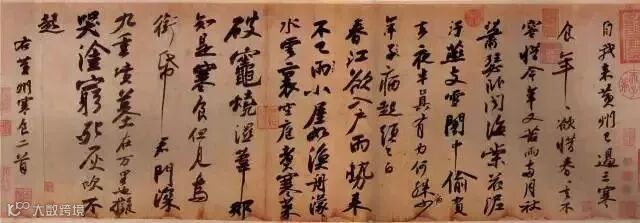 自我來黃州已過三寒
食年〻欲惜春春去不
容惜今年又苦雨兩月秋
蕭瑟臥聞海棠花泥
汙燕支雪闇中偷負
去夜半真有力何殊病少
年子病起頭已白
春江欲入戶雨勢來
不已雨小屋如漁舟濛〻
水雲裏空庖煮寒菜
破竈燒濕葦那
知是寒食但見烏
銜帋君門深
九重墳墓在万里也擬
哭塗窮死灰吹不
起
右黃州寒食二首
大数跨境